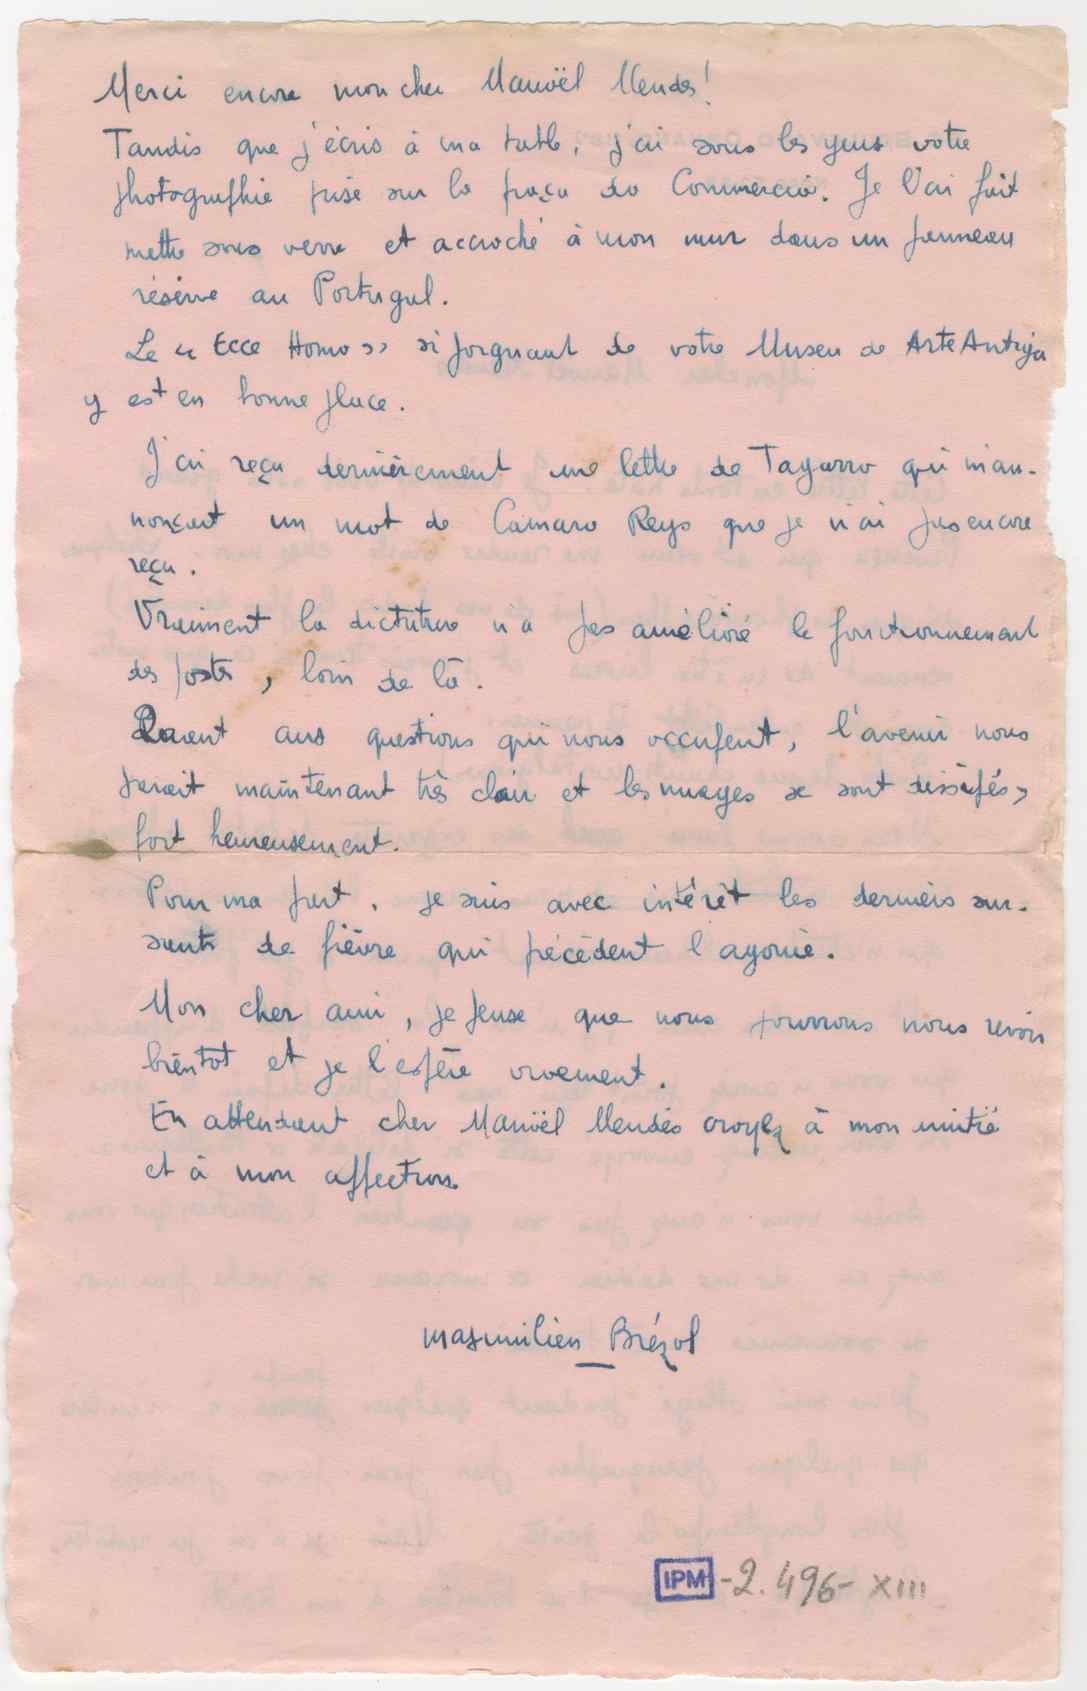 Merci encore mon cher Manoël Mendes!
Tandis que j'écris à ma table, j'ai sous les yeux votre
photographie prise sur la praça do Commercio. Je l'ai fait
mettre sous verre et accroché à mon mur dans un panneau
réservé au Portugal.
Le « Ecce Homo » si poignant de votre Museu de Arte Antiga
y est en bonne place.
J'ai reçu dernièrement une lettre de Tagarro qui m'an-
nonçait un mot de Camara Reys que je n'ai pas encore
reçu.
Vraiment la dictature n'a pas amélioré le fonctionnement
des postes, loin de là.
Quant aux questions qui nous occupent, l'avenir nous
parait maintenant très clair et les nuages se sont dissipés,
fort heureusement.
Pour ma part, je suis avec intérêt les derniers sur-
sauts de fièvre qui précèdent l'agonie.
Mon cher ami, je pense que nous pourrons nous revoir
bientot et je l'espère vivement.
En attendant cher Manoël Mendès croyez à mon amitié
et à mon affection.
Maximilien Brézol
IPM -2.496- XIII